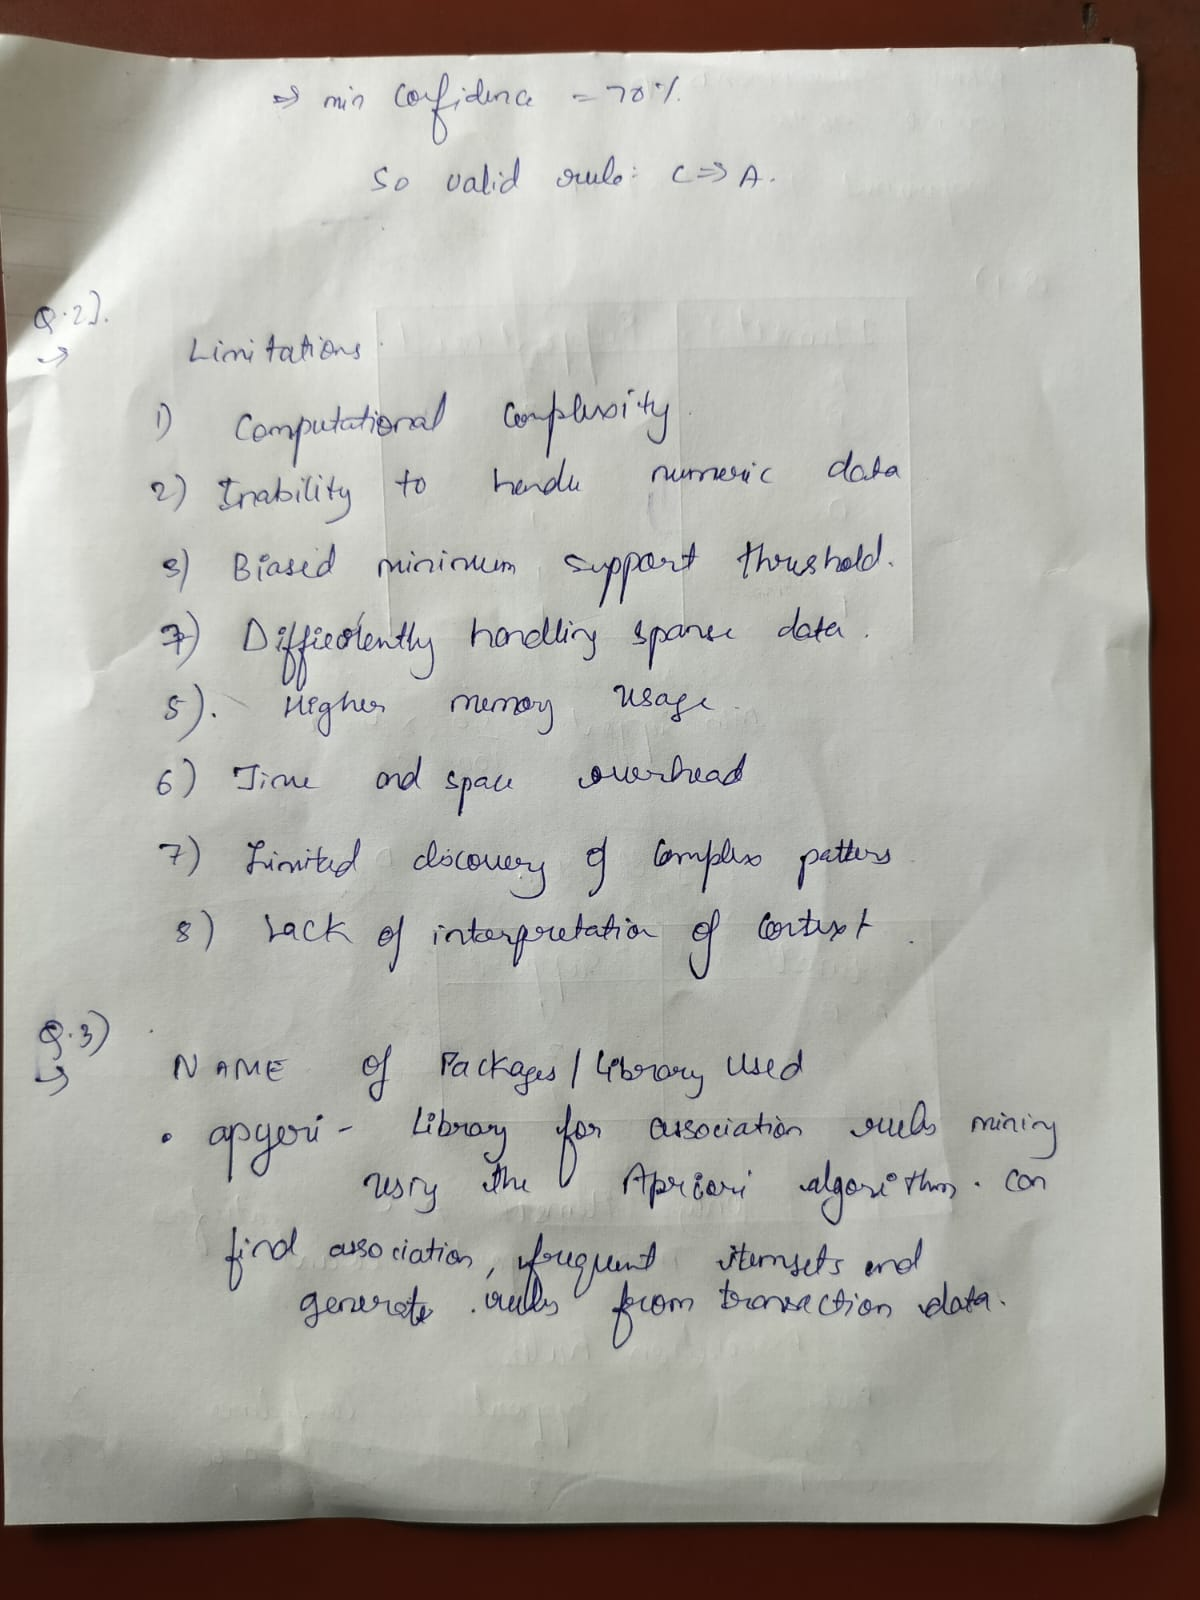 ⇒ min Confidence = 70%.
So valid rule: C ⇒ A.
Q.2).
→
Limitations
1) Computational Complexity.
2) Inability to handle numeric data
3) Biased minimum support threshold.
4) handling sparse data.
5). Higher memory usage.
6) Time and space overhead
7) Limited discovery of Complex patters
8) Lack of interpretation of Context.
Q.3)
→
NAME of Packages / Library Used
• apyori - Library for association rules mining
using the Apriori algorithm. Can
find association, frequent itemsets and
generate rules from transaction data.